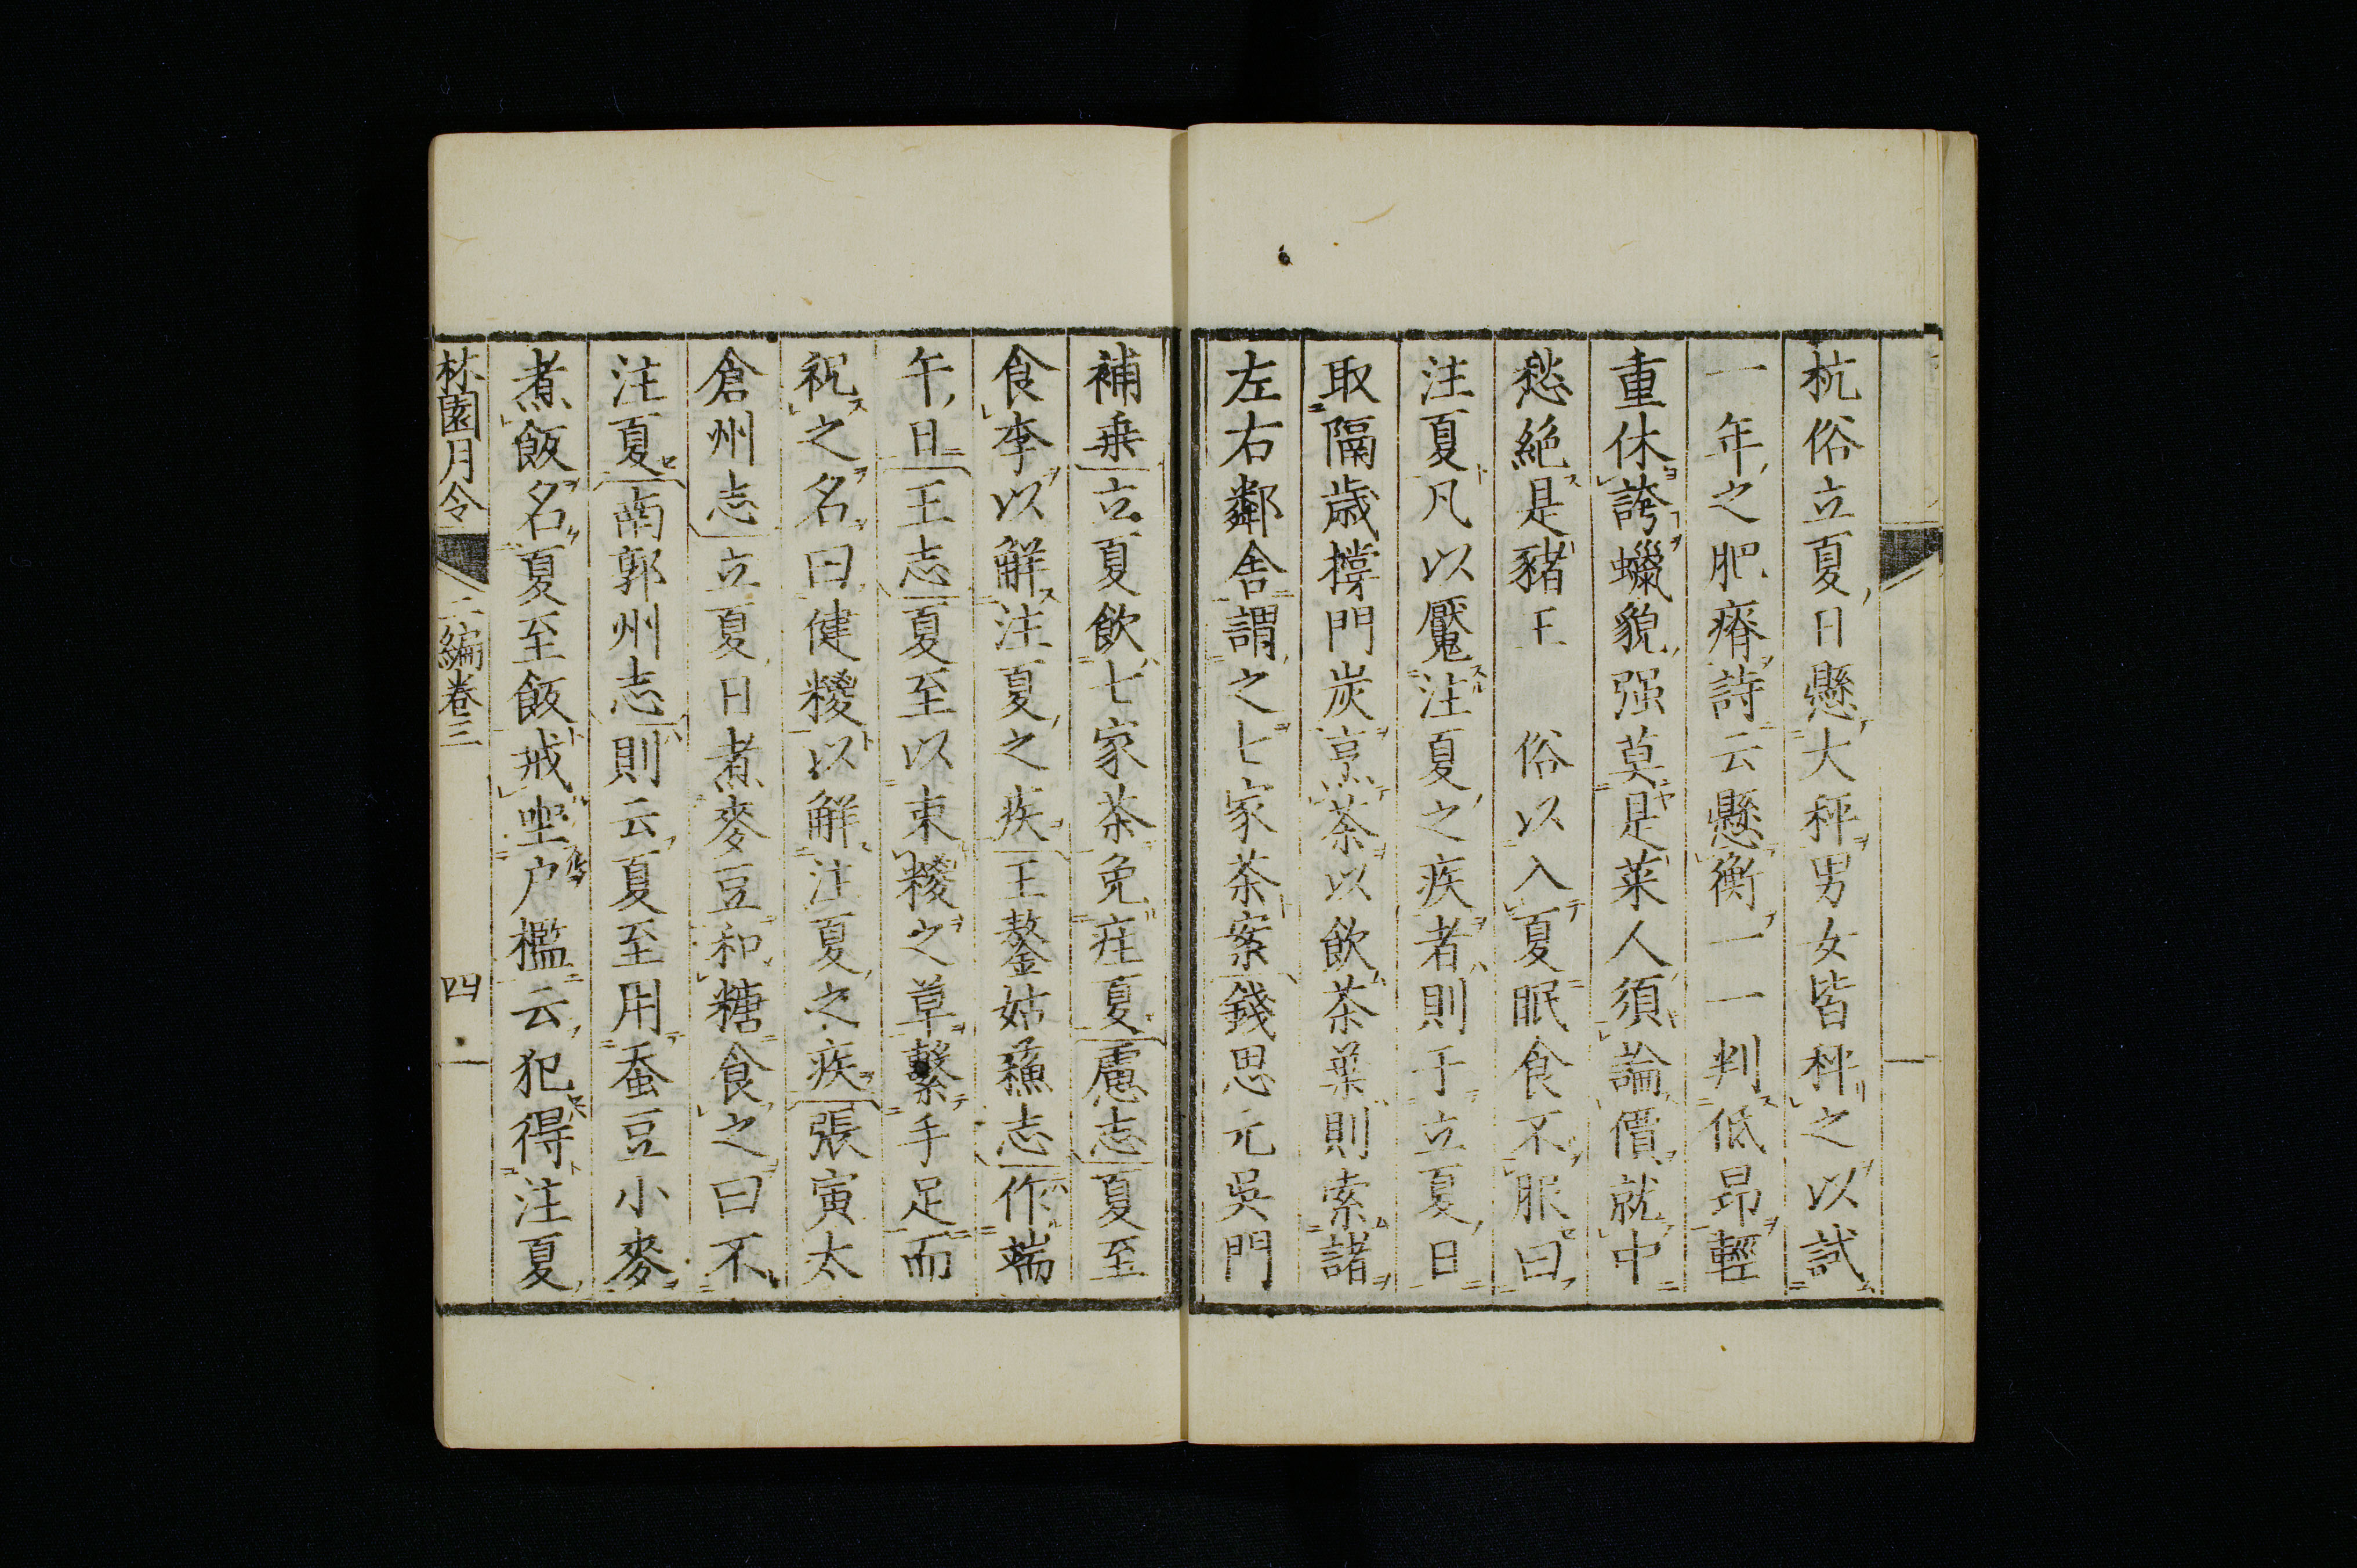 杭俗立夏日懸大秤男女皆秤之以試
一年之肥瘠詩云懸衡一一判低昂輕
重休誇蠟貌强莫是菜人須論價就中
愁絕是豬王　俗以入夏眠食不服曰
注夏凡以魘注夏之疾者則于立夏日
取隔歲撐門炭烹茶以飲茶葉則索諸
左右鄰舍謂之七家茶案錢思元吳門
補乘立夏飲七家茶免疰夏盧志夏至
食李以解注夏之疾王鏊姑蘇志作端
午日王志夏至以束糭之草繫手足而
祝之名曰健糭以解注夏之疾張寅太
倉州志立夏日煮麥豆和糖食之曰不
注夏南郭州志則云夏至用蚕豆小麥
煮飯名夏至飯戒坐户檻云犯得注夏
林園月令　二編卷三　四